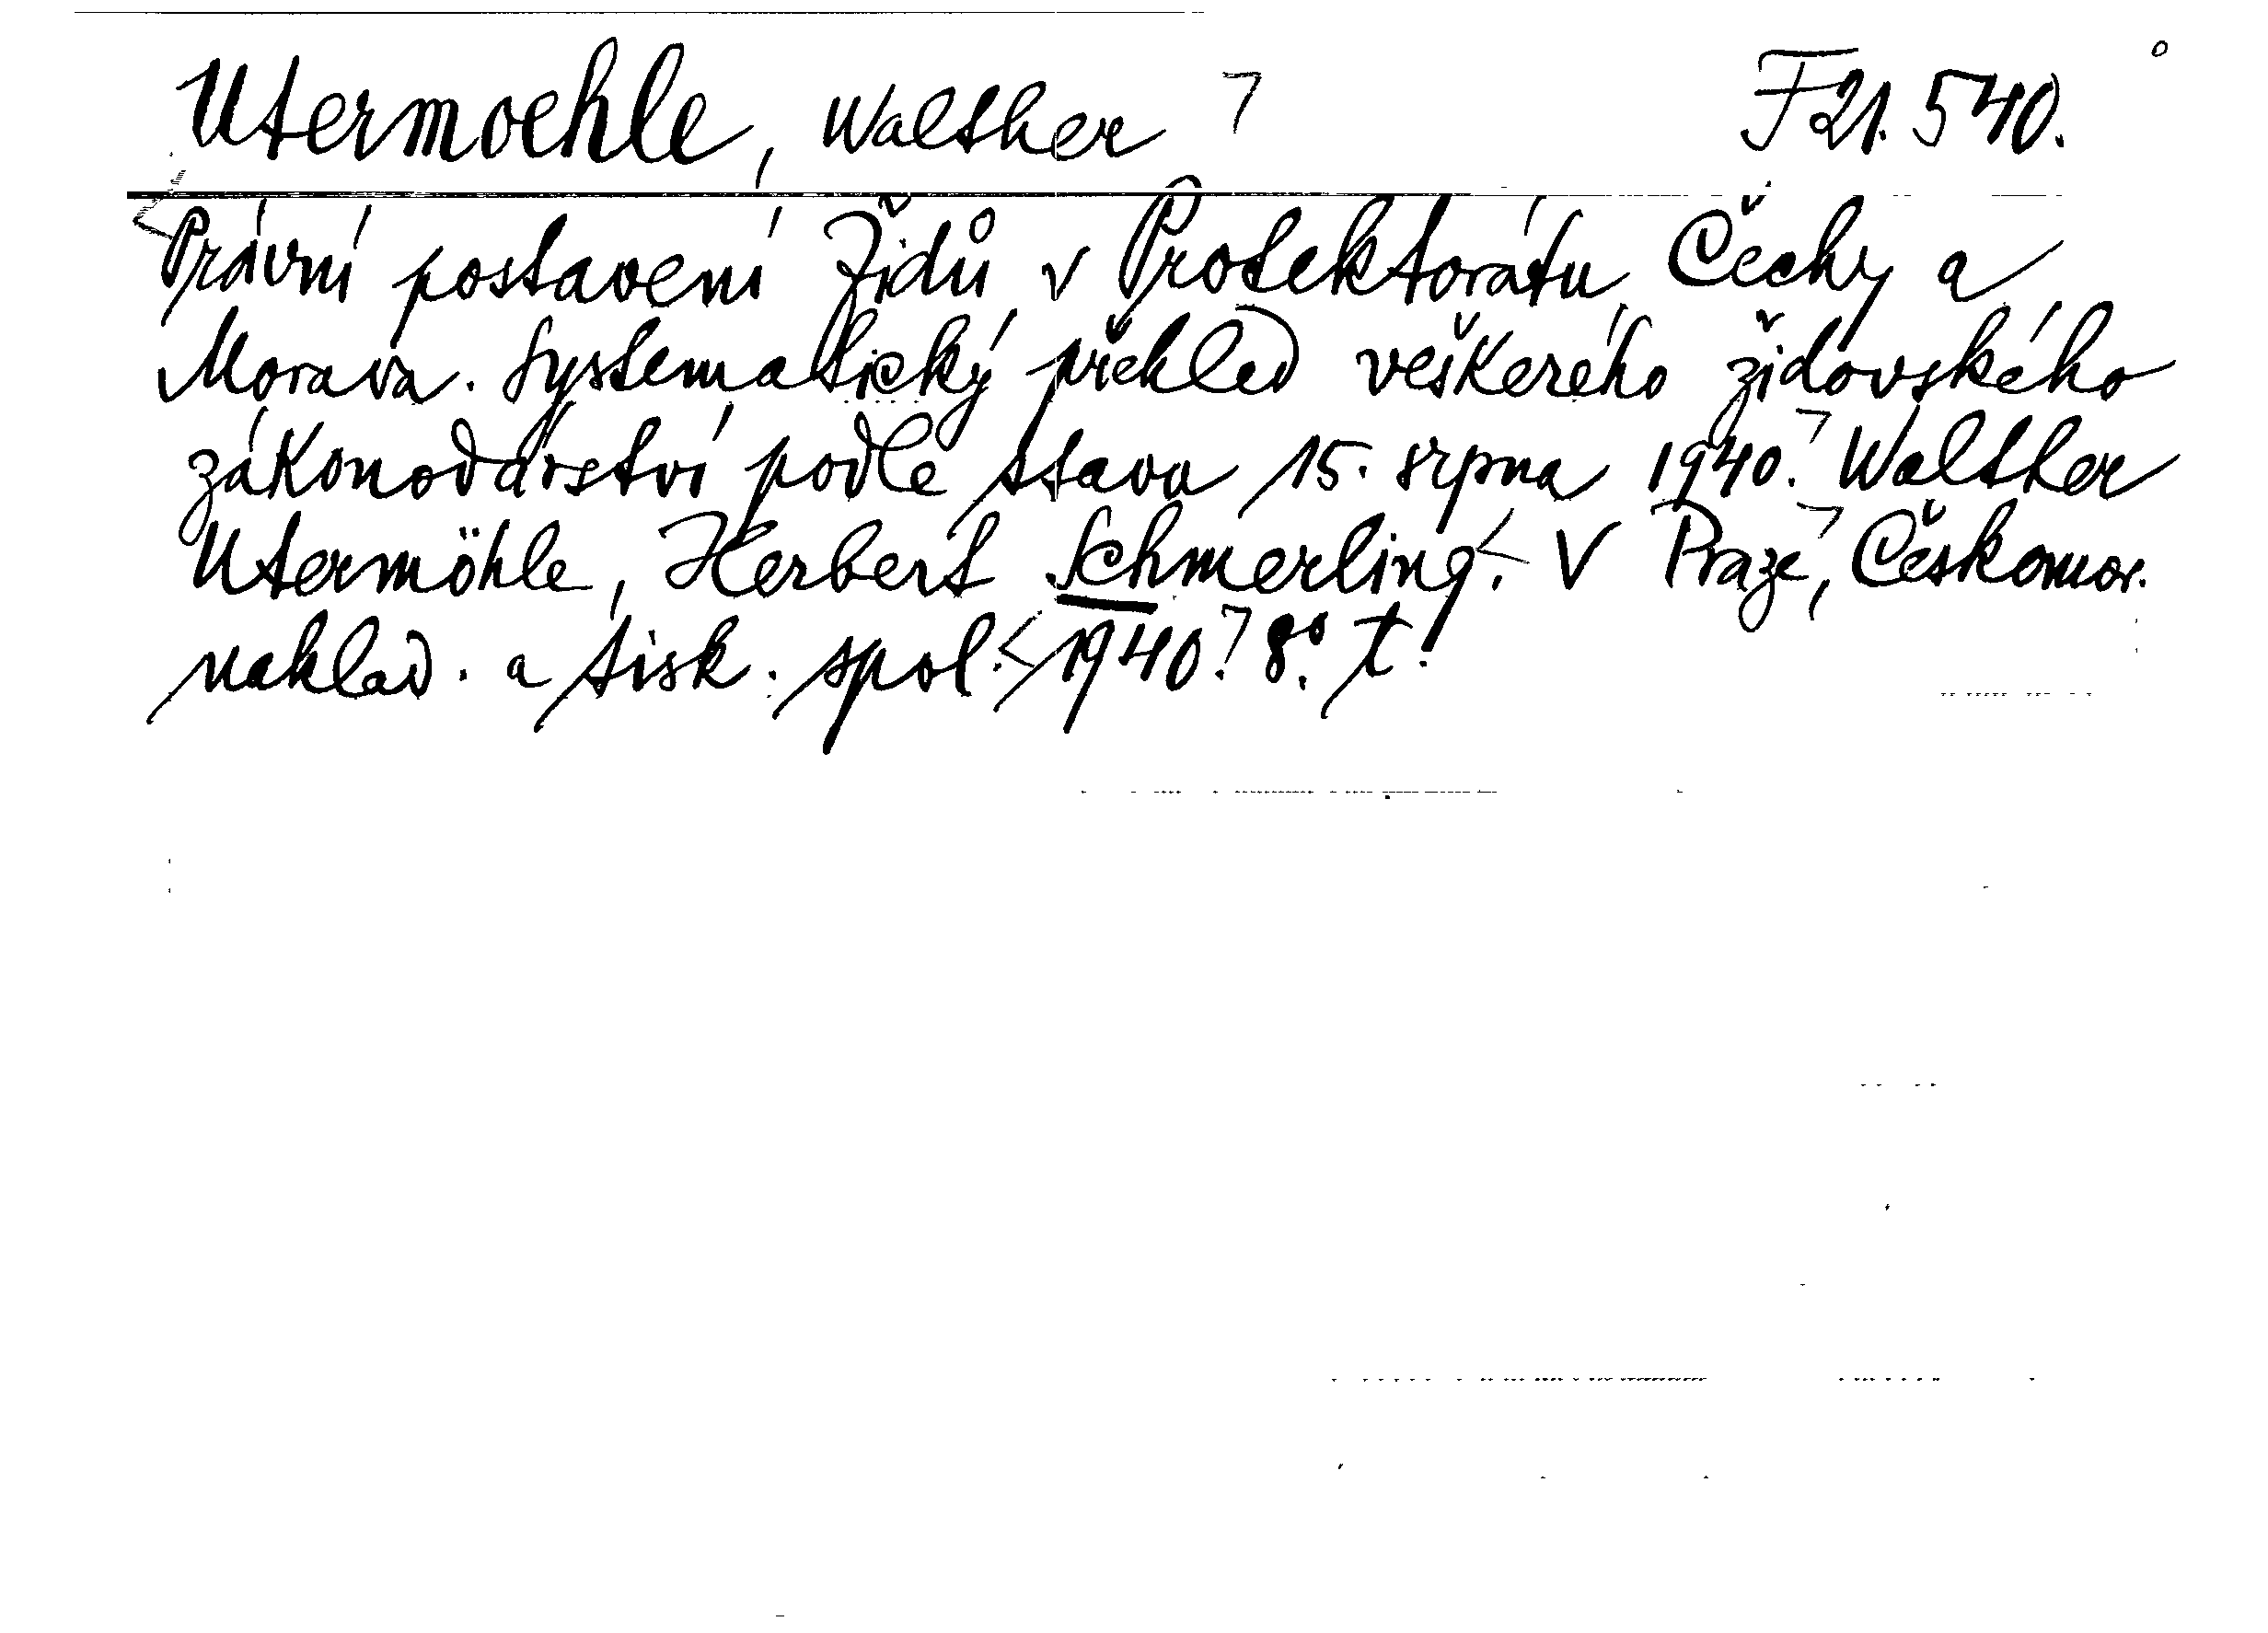 Utermoehle, Walther F21.540.
Právní postavení Židů v Protektorátu Čechy a
Morava. Systematický přehled veškerého židovského
zákonodárství podle stavu 15. srpna 1940. Walther
Utermöhle, Herbert Schmerling. V Praze, Českomor.
naklad. a tisk. spol. 1940. 8°. t.